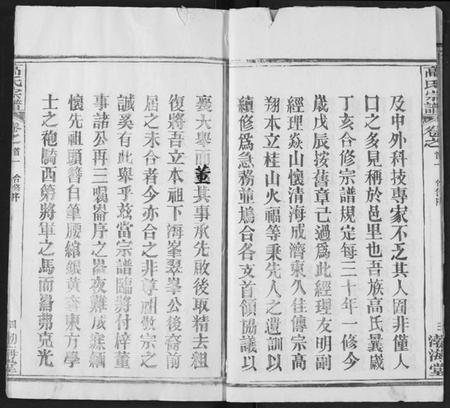 高氏宗譜
卷之首
三
渤海堂
及中外科技專家不乏其人固非僅人
口之多見稱於邑里也吾族高氏曩歲
丁亥合修宗譜規定每三十年一修今
歲戊辰按舊章已過爲此經理友明副
經理焱山懷清海成濟東久往傳宗高
翔本立桂山火福等秉先人之遺訓以
續修爲急務並塢合各支首領協議以
襄大舉而董其事承先啟後取精去粗
復將吾立本祖下海峯翠峯公後裔前
居之未合者今亦合之非尊祖敬宗之
誠奚有此舉乎茲當宗譜臨將付梓董
事諸公再三囑崙序之崙夜難成寐緬
懷先祖頭簪白筆腰綰銀黃奔東方學
士之袍騎西第將軍之馬而崙弗克光
高氏宗譜
卷之首
一
合修序
四
渤海堂